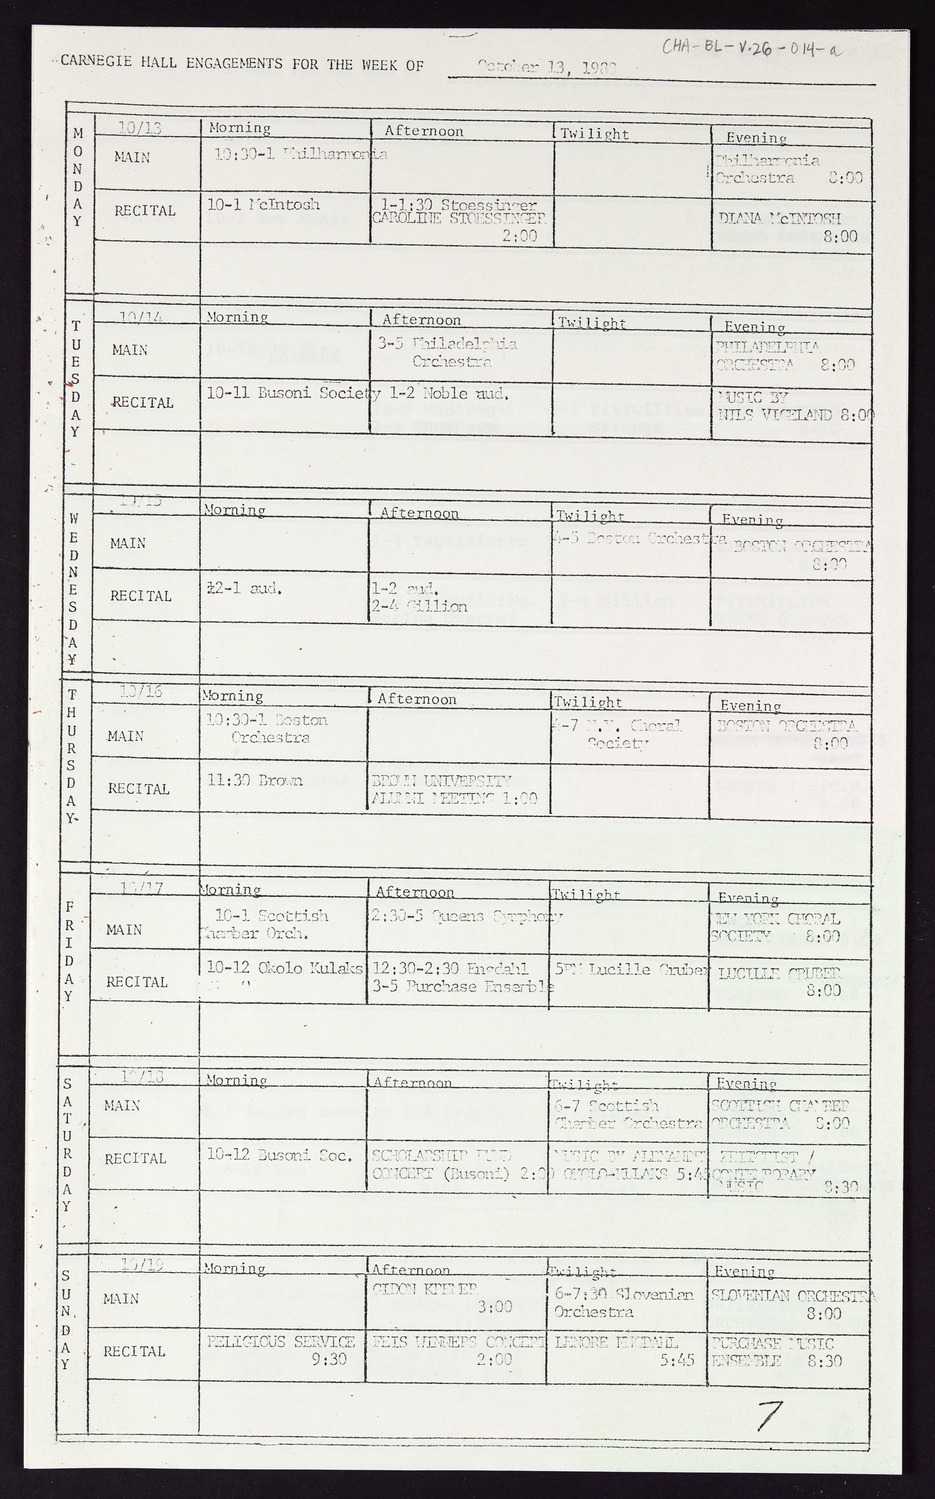 CHA-BL-V.26-014-a
CARNEGIE HALL ENGAGEMENTS FOR THE WEEK OF October 13, 198
MONDAY
10/13 Morning Afternoon Twilight Evening
MAIN 10:30-1 Philharmonia Philharmonia
Orchestra 8:00
RECITAL 10-1 McIntosh 1-1:30 Stoessinger
CAROLINE STOESSINGER DIANA McINTOSH
2:00 8:00
TUESDAY
10/14 Morning Afternoon Twilight Evening
MAIN 3-5 Philadelphia PHILADELPHIA
Orchestra ORCHESTRA 8:00
RECITAL 10-11 Busoni Society 1-2 Noble aud. MUSIC BY
NILS VIGELAND 8:00
WEDNESDAY
10/15 Morning Afternoon Twilight Evening
MAIN 4-5 Boston Orchestra BOSTON ORCHESTRA
8:00
RECITAL 12-1 aud. 1-2 aud.
2-4 Gillion
THURSDAY
10/16 Morning Afternoon Twilight Evening
MAIN 10:30-1 Boston 4-7 N.Y. Choral BOSTON ORCHESTRA
Orchestra Society 8:00
RECITAL 11:30 Brown BROWN UNIVERSITY
ALUMNI MEETING 1:00
FRIDAY
10/17 Morning Afternoon Twilight Evening
MAIN 10-1 Scottish 2:30-5 Queens Symphony NEW YORK CHORAL
Chamber Orch. SOCIETY 8:00
RECITAL 10-12 Okolo Kulaks 12:30-2:30 Engdahl 5PM Lucille Gruber LUCILLE GRUBER
" " 3-5 Purchase Ensemble 8:00
SATURDAY
10/18 Morning Afternoon Twilight Evening
MAIN 6-7 Scottish SCOTTISH CHAMBER
Chamber Orchestra ORCHESTRA 8:00
RECITAL 10-12 Busoni Soc. SCHOLARSHIP FUND MUSIC BY /
CONCERT (Busoni) 2:00 OKOLO-KULAKS 5:45 CONTEMPORARY
MUSIC 8:30
SUNDAY
10/19 Morning Afternoon Twilight Evening
MAIN GIDON KREMER 6-7:30 Slovenian SLOVENIAN ORCHESTRA
3:00 Orchestra 8:00
RECITAL RELIGIOUS SERVICE FEIS WINNERS CONCERT LENORE ENGDAHL PURCHASE MUSIC
9:30 2:00 5:45 ENSEMBLE 8:30
7